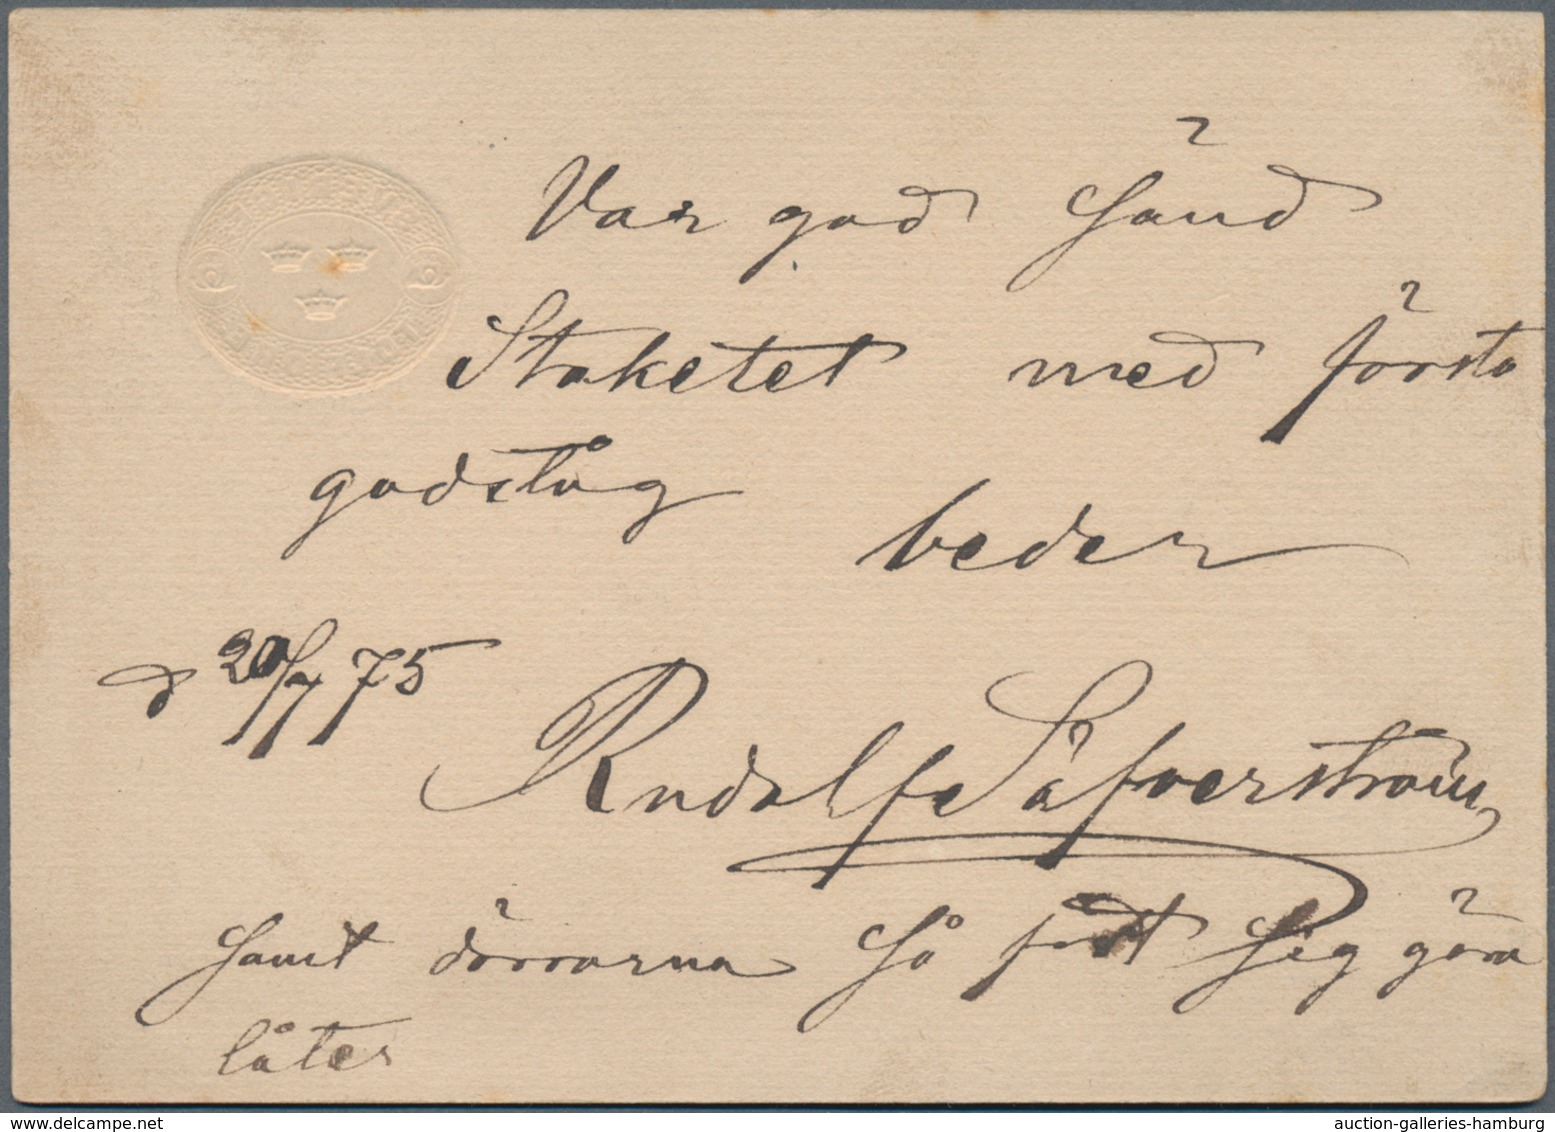 Var god sänd
Staketet med första
godståg
beder
d 20/7 75
Rudolf Säfverström
samt dörrarna så fort sig göra
låter
delcampe.net
auction-galleries-hamburg